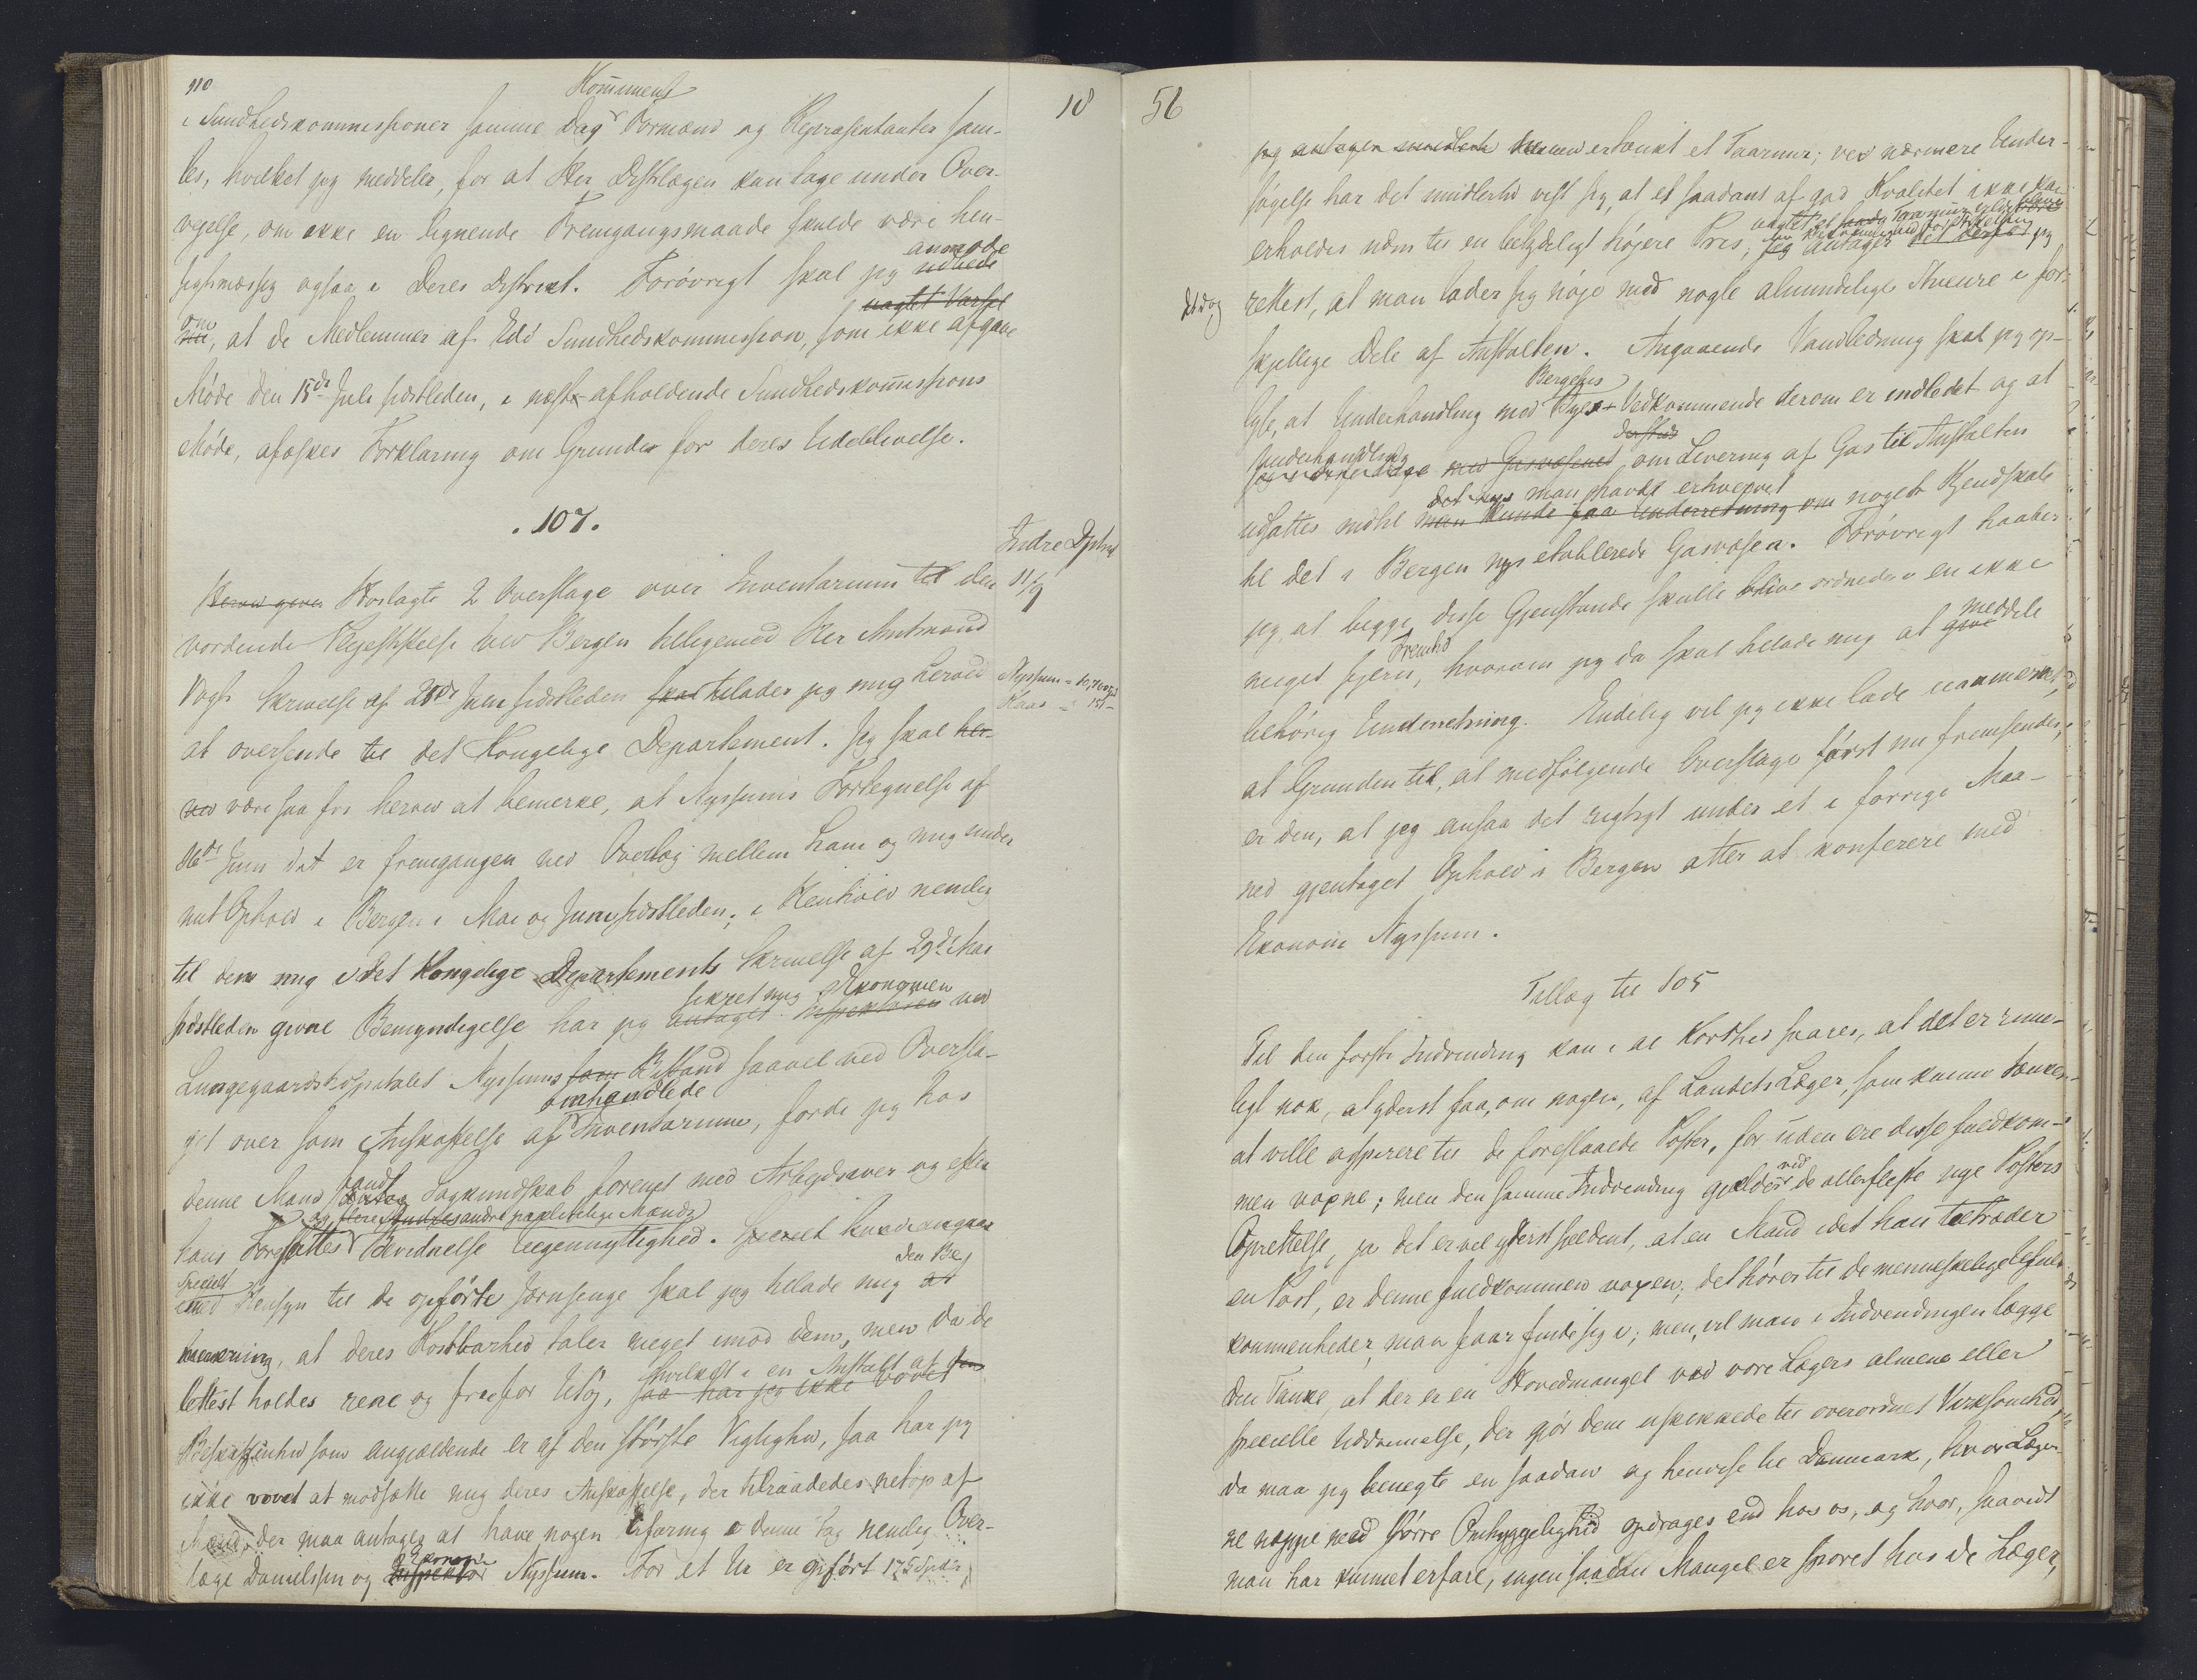 910
Kommunens
i Sundhedskommissioner samme Dag Formænd og Repræsentanter sam-
les, hvilket jeg meddeler, for at Hr Distrlægen kan tage under Over-
veielse, om ikke en lignende Fremgangsmaade skulde være hen-
sigtsmæssig ogsaa i Deres Distrikt. Forøvrigt skal jeg udbede
anmode
uagtet Varsel
om, at de Medlemmer af Eds Sundhedskommission, som ikke afgave
Møde den 15de Juli sidstleden, i næste afholdende Sundhedskommissions
Møde, afæskes Forklaring om Grunden for deres Udeblivelse.
. 107.
Indre Dptmt
11/9
Herved giver Hoslagte 2 Overslage over Inventarium til den
vordende Plejestiftelse ved Bergen tilligemed Hr Amtmand
Vogts Skrivelse af 28de Juni sidstleden skal tillader jeg mig herved
Nyssum
Kaas
at oversende til det Kongelige Departement. Jeg skal her-
ved være saa fri herved at bemærke, at Nyssums Fortegnelse af
16de Juni d A er fremgangen ved Overlæg mellem ham og mig under
mit Ophold i Bergen i Mai og Juni sidstleden; i Henhold nemlig
til den mig i det Kongelige Departements Skrivelse af 29de Mai
sidstleden givne Bemyndigelse har jeg antaget Inspektøren ved
sikret mig Ekonomen
Lungegaardshospitalet Nyssums som Bistand saavel ved Oversla-
get over som Anskaffelse af Inventarium, fordi jeg hos
omhandlede
denne Mand Sagkundskab forenet med Arbeidsiver og efter
fandt
og flere Andres andre paalidelige Mænds
hans Foresattes Bevidnelse Uegennyttighed. Specielt hvad angaar
Specielt
med Hensyn til de opførte Jernsenge skal jeg tillade mig at
den Be-
mærkning, at deres Kostbarhed taler meget imod dem, men da de
lettest holdes rene og frie for Utøi, saa har jeg ikke vovet
hvilket i en Anstalt af den
Beskaffenhed som angjældende er af den største Vigtighed, saa har jeg
ikke vovet at modsætte mig deres Anskaffelse, der tilraadedes netop af
Mænd, der maa antages at have nogen Erfaring i denne Sag nemlig Over-
læge Danielssen og Inspektør Nyssum. For et Ur er opført 175 Spdlr
Ekonom
18
56
jeg antager imidlertid kunne ertænkt et Taarnur; ved nærmere Under-
søgelse har det imidlertid vist sig, at et saadant af god Kvalitet ikke kan
erholdes uden til en betydeligt højere Pris, jeg antager det derfor jeg
dog
rettest, at man lader sig nøje med nogle almindelige Stueure i for-
skjellige Dele af Anstalten. Angaaende Vandledning skal jeg op-
lyse, at Underhandling med Byens Vedkommende derom er indledet og at
Bergens
Underhandling
med Gasværket om Levering af Gas til Anstalten
udsattes indtil man kunde faa Underretning om noget Kjendskab
man havde erhvervet
til det i Bergen nys etablerede Gasvæsen. Forøvrigt haaber
jeg, at begge disse Gjenstande skulle blive ordnede i en ikke
meget fjern, hvorom jeg da skal tillade mig at give
Fremtid
meddele
behørig Underretning. Endelig vil jeg ikke lade uanmærket,
at Grunden til, at medfølgende Overslage først nu fremsendes,
er den, at jeg ansaa det rigtigt under et i forrige Maa-
ned gjentaget Ophold i Bergen atter at konferere med
Ekonom Nyssum.
Tillæg til 105
Til den første Indvending kan i al Korthed svares, at det er rime-
ligt nok, at yderst faa, om nogen, af Landets Læger, som kunne tænkes
at ville aspirere til de foreslaaede Poster, for uden ere disse fuldkom-
men voxne; men den samme Indvending gjælder ved de allerfleste nye Posters
Oprettelse, ja det er vel yderst sjeldent, at en Mand idet han tiltræder
en Post, er denne fuldkommen voxen; det hører til de menneskelige Ufuld-
kommenheder, man faar finde sig i; men, vil man i Indvendingen lægge
den Tanke, at der er en Hovedmangel ved vore Lægers almene eller
specielle Uddannelse, der gjør dem uskikkede til overordnet Virksomhed,
da maa jeg benegte en saadan og henvise til Danmark, hvor Læger-
ne neppe med større Omhyggelighed opdrages end hos os, og hvor, saavidt
man har kunnet erfare, ingen saadan Mangel er sporet hos de Læger,